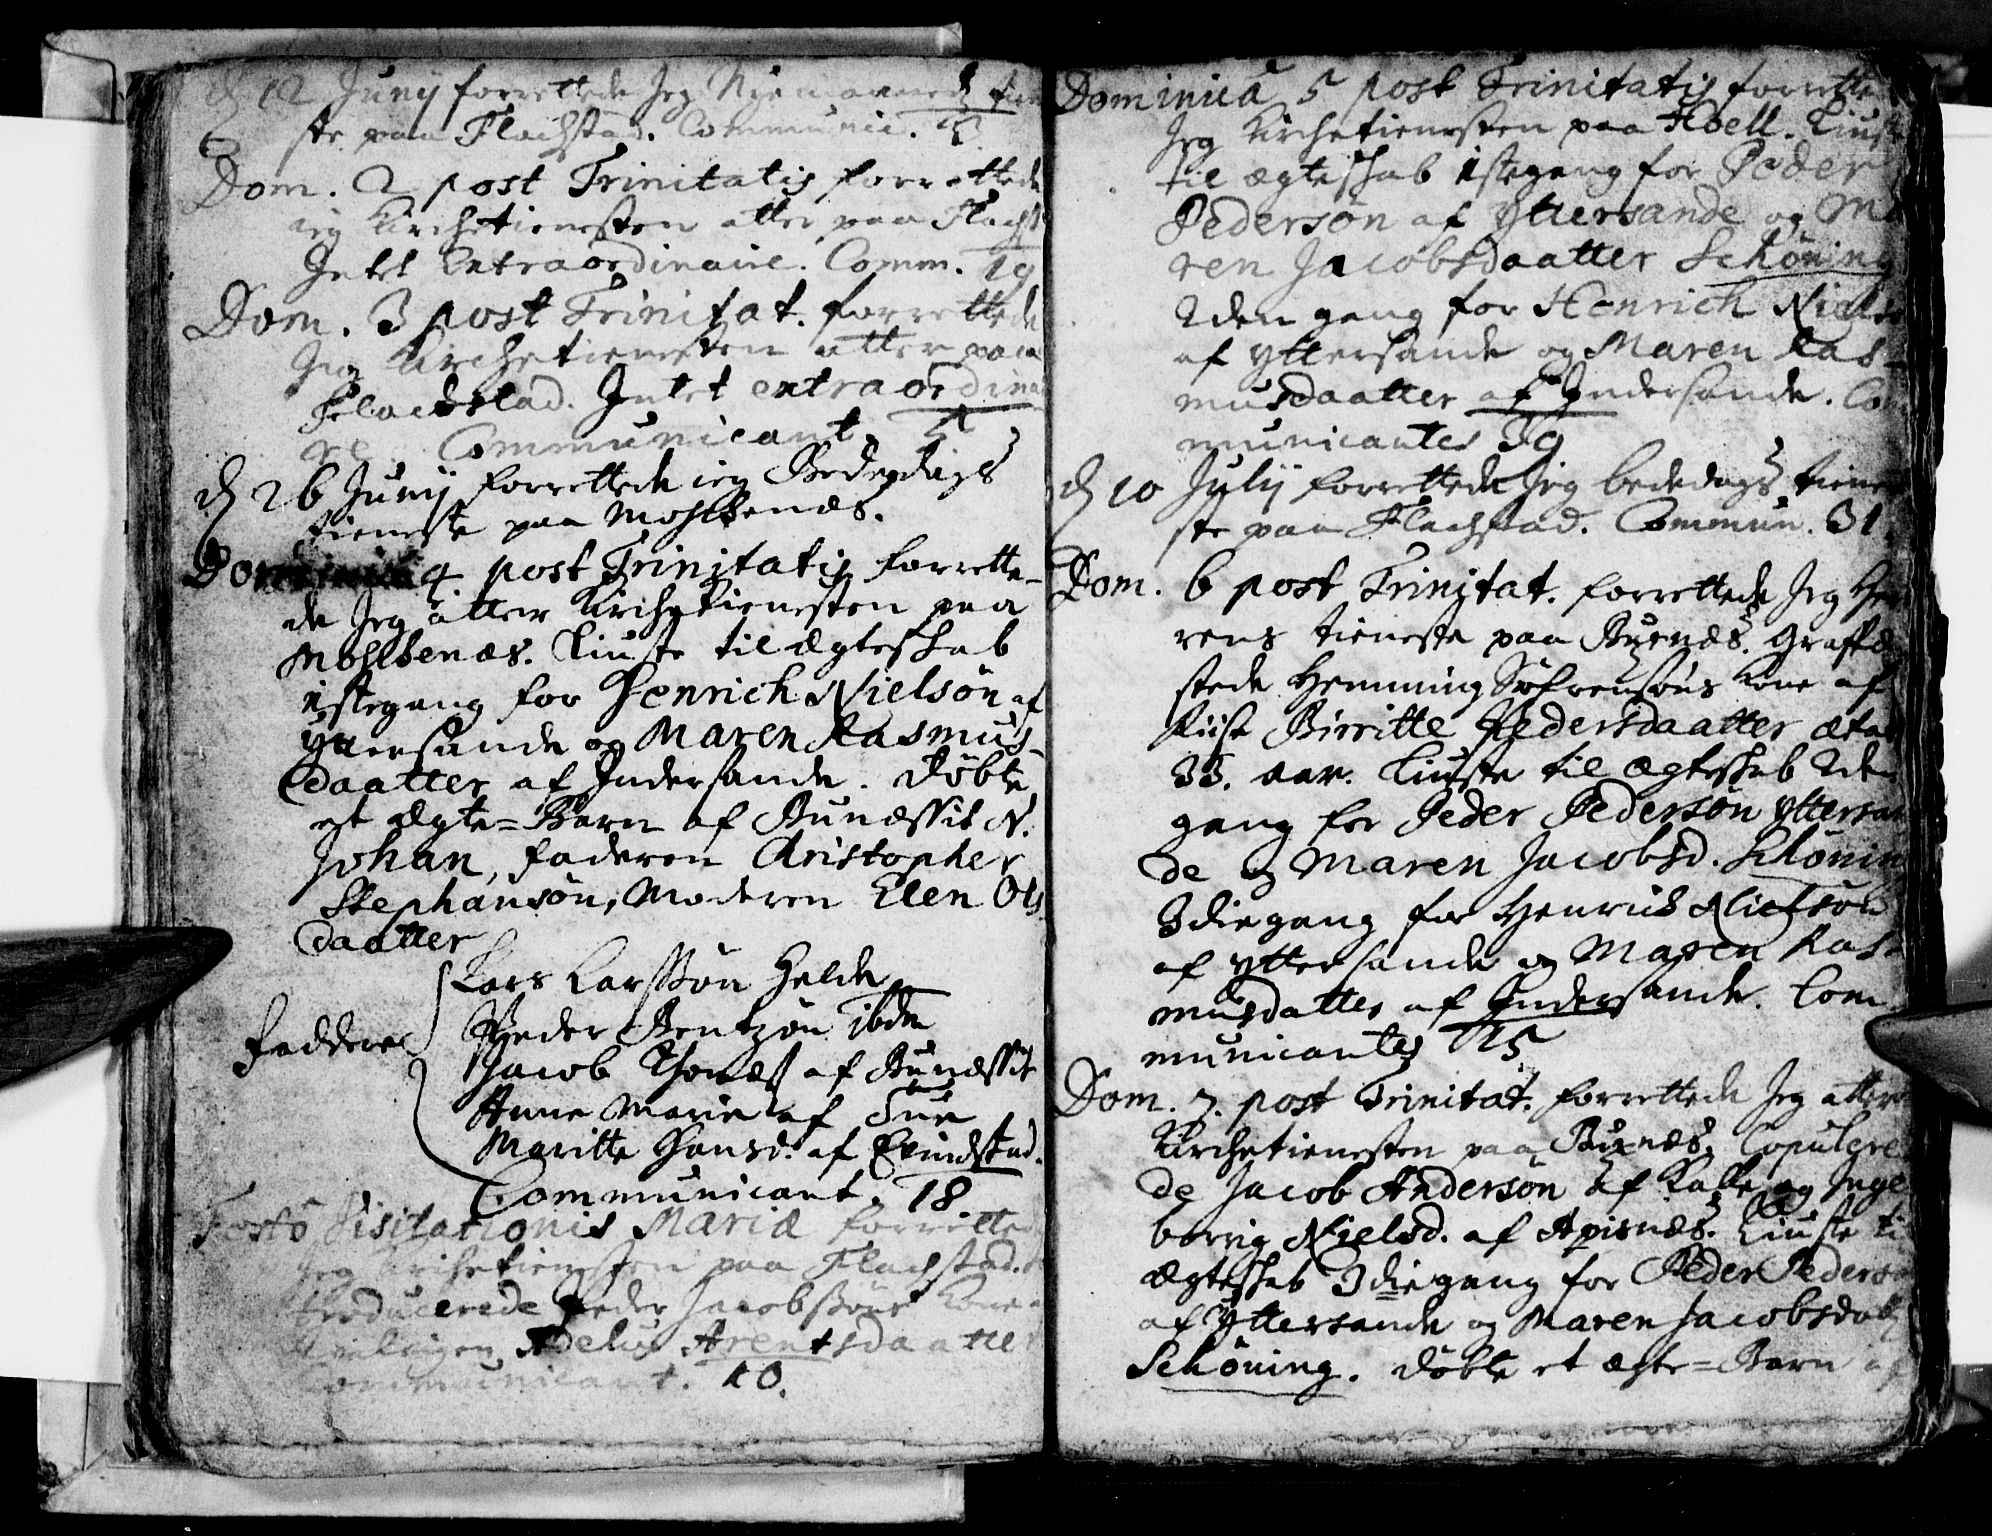 12 Junij forrettede Jeg
ste paa Flachstad. Communic. 5
Dom. 2 post Trinitatis forrettede
jeg Kirchetienesten atter paa Flachst
Intet Extraordinaire. Comm. 19
Dom. 3 post Trinitat. forrettede
Jeg Kirchetienesten atter paa
Flackstad. Intet extraordina
re. Communicant.
26 Junij forrettede jeg Bededags
tieneste paa Mohskenæs.
4 post Trinitatis forrette-
de Jeg atter Kirchetienesten paa
Mohskenæs. Liuste til Ægteskab
1ste gang for Henrich Nielsøn af
Yttersande og Maren Rasmus-
daatter af Indersande. Døbte
et Ægte=Barn af Bunæssit N.
Johan, faderen Christopher
Stephansøn, Moderen Elen Ols
daatter
Lars Larssøn Helde
Faddere Peder Bentzøn ibdm
Jacob Thomæs af Bunæssit
Anne Marie af Sue
Maritte Hansd. af Evindstad.
Communicant. 18
Festo Visitationis Mariæ forrettede
Jeg Kirchetienesten paa Flachstad.
troducerede Peder Jacobssøns Kone
Adelus Arentsdaatter
Communicant. 10.
Dominica 5 post Trinitatis forrette
Jeg Kirchetienesten paa Hoell. Liuste
til ægteskab 1ste gang for Peder
Pedersøn af Yttersande og Ma
ren Jacobsdaatter Schøning
2den gang for Henrich Niels
af Yttersande og Maren Ras-
musdaatter af Indersande. Com
municantes 39
10 Julij forrettede Jeg bededags tiene
ste paa Flachstad. Commun. 31.
Dom. 6 post Trinitat. forrettede Jeg Her
rens tieneste paa Buxnæs. Graffæ
stede Hemming Søfrensøns Kone af
Birritte Pedersdaatter ætat
33. aar. Liuste til ægteskab 2den
gang for Peder Pedersøn Yttersan
de og Maren Jacobsd. Schøning
3die gang for Henrich Nielsøn
af Yttersande og Maren Ras-
musdatter af Indersande. Com
municantes 115
Dom. 7. post Trinitat. forrettede Jeg atter
Kirchetienesten paa Buxnæs. Copulere
de Jacob Andersøn af Kalle og Inge
borrig Nielsd. af Apisnæs. Liuste ti
ægteskab 3die gang for Peder Pedersø
af Yttersande og Maren Jacobsdatt
Schøning. Døbte et ægte=Barn af